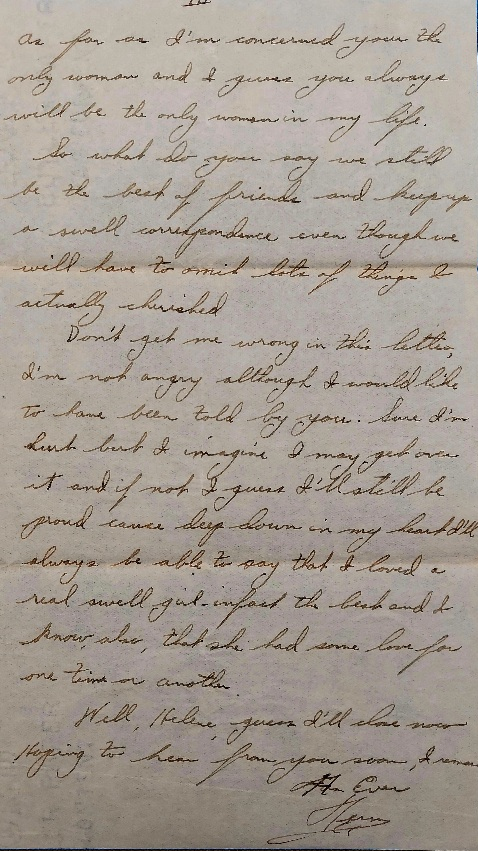 III
as far as I'm concerned your the
only woman and I guess you always
will be the only woman in my life.
So what do you say we still
be the best of friends and keep up
a swell correspondence even though we
will have to omit lots of things I
actually cherished
Don't get me wrong in this letter,
I'm not angry although I would like
to have been told by you. Sure I'm
hurt but I imagine I may get over
it and if not I guess I'll still be
proud cause deep down in my heart I'll
always be able to say that I loved a
real swell girl-infact the best and I
know, also, that she had some love for
one time or another.
Well, Helene, guess I'll close now
Hoping to hear from you soon, I remain
As Ever